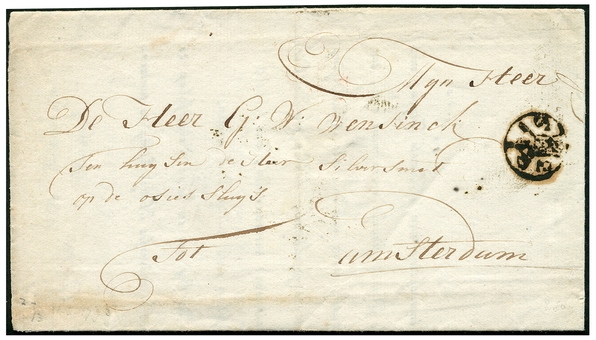 Myn Heer
De Heer G: W: Wensinck
Ten huysen Silversmet
op de osies Sluys
Tot amsterdam